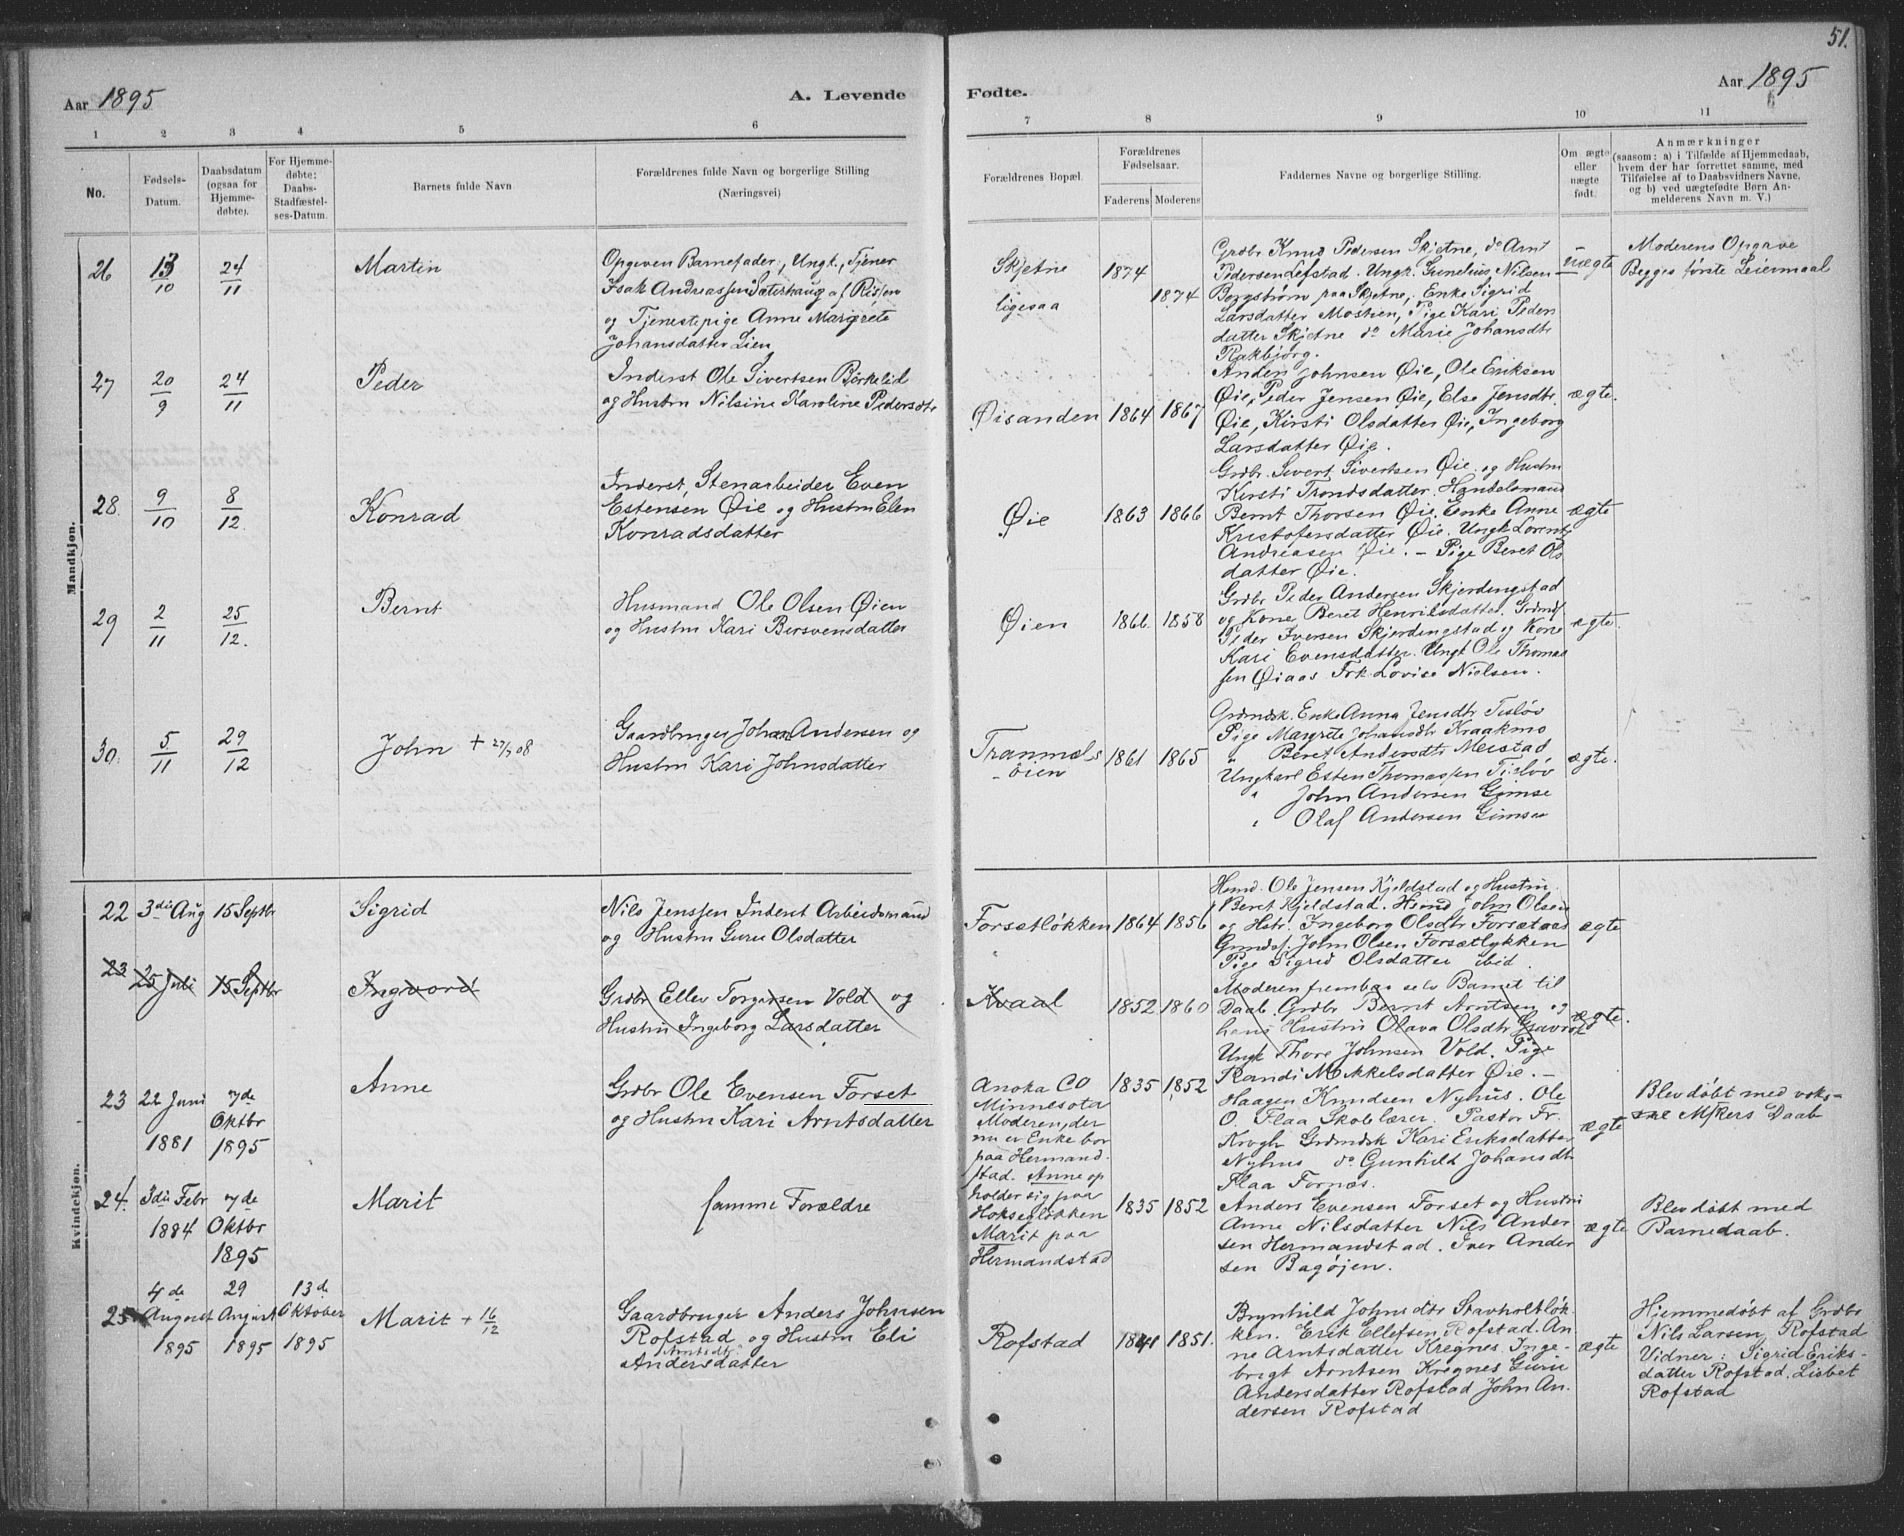 51.
Aar 1895
A. Levende
Fødte.
Aar 1895
1 2 3 4 5 6
7 8 9 10 11
No.
Fødsels-
Datum.
Daabsdatum
(ogsaa for
Hjemme-
døbte).
For Hjemme-
døbte:
Daabs-
Stadfæstel-
ses-Datum.
Barnets fulde Navn
Forældrenes fulde Navn og borgerlige Stilling
(Næringsvei)
Forældrenes Bopæl.
Forældrenes
Fødselsaar.
Faderens Moderens
Faddernes Navne og borgerlige Stilling.
Om ægte
eller
uægte
født.
Anmærkninger
(saasom: a) i Tilfælde af Hjemmedaab,
hvem der har forrettet samme, med
Tilføielse af to Daabsvidners Navne,
og b) ved uægtefødte Børn An-
melderens Navn m. V.)
Mandkjøn.
26 13/10 24/11 Martin
Opgiven Barnefader, Ungk., Tjener
Isak Andreassen Sæterhaug af Rissen
og Tjenestepige Anne Margrete
Johansdatter Lien
Skjetne 1874
ligesaa 1874
Grdbr Knud Pedersen Skjetne, do Arnt
Pedersen Lefstad. Ungk. Gunelius Nilsen
Borgstrøm paa Skjetne, Enke Sigrid
Larsdatter Mostien, Pige Kari Peders
datter Skjetne do Marie Johansdtr
Rakbjörg.
uægte
Moderens Opgave
Begges første Leiermaal
27 20/9 24/11 Peder
Inderst Ole Sivertsen Børkelid
og Hustru Nilsine Karoline Pedersdtr
Øisanden 1864 1867
Anders Johnsen Øie, Ole Eriksen
Øie, Peder Jensen Øie, Else Jensdtr.
Øie, Kirsti Olsdatter Øie, Ingeborg
Larsdatter Øie.
ægte.
28. 9/10 8/12. Konrad
Inderst, Stenarbeider Even
Estensen Øie og Hustru Elen
Konradsdatter
Øie 1863 1866
Grdbr. Sivert Sivertsen Øie og Hustru
Kirsti Trondsdatter. Handelsmand
Bernt Thorsen Øie. Enke Anne
Kristofersdatter Øie. Ungk. Lorents
Andreasen Øie. – Pige Beret Ols
datter Øie.
ægte
29 2/11 25/12. Bernt
Husmand Ole Olsen Øien
og Hustru Kari Bersvensdatter
Øien 1866. 1858
Grdbr Peder Andersen Skjerdingstad
og Kone Beret Henriksdatter. Grdmd
Peder Iversen Skjerdingstad og Kone
Kari Evensdatter. Ungk Ole Thomas
sen Øiaas Frk. Lovise Nielsen.
ægte.
30. 5/11 29/12 John + 27/7 08
Gaardbruger Johan Andersen og
Hustru Kari Johnsdatter
Tranmæls
-øien 1861 1865
Grdmdsk. Enke Anna Jensdtr Tisløv
Pige Margrete Johansdtr Kraakmo
" Beret Andersdtr Meistad
Ungkarl Esten Thomassen Tisløv
" John Andersen Gimse
" Olaf Andersen Gimse
ægte.
Kvindekjøn.
22 3die Aug 15 Septbr Sigrid
Nils Jenssen Inderst Arbeidsmand
og Hustru Guru Olsdatter
Forsetløkken 1864 1856
Hsmd. Ole Jensen Kjeldstad og Hustru
Beret Kjeldstad. Hsmd John Olsen
og Hstr. Ingeborg Olsdtr Forsetaas
Grundsf. John Olsen Forsætlykken
Pige Sigrid Olsdatter ibid.
ægte
23 25 Juli 15 Septbr Ingvord
Grdbr Ellev Torgersen Vold og
Hustru Ingeborg Larsdatter
Kvaal 1852 1860
Moderen frembar selv Barnet til
Daab. Grdbr Bernt Arntsen og
hans Hustru Olava Olsdtr Gravraak
Ungk Thore Johnsen Vold. Pige
Randi Mikkelsdatter Øie. –
ægte.
23 22 Juni
1881
7de
Oktbr
1895
Anne
Grdbr Ole Evensen Forset
og Hustru Kari Arntsdatter
Anoka CO
Minnesota
Moderen, der
nu er Enke bor
paa Hermand-
stad. Anne op
holder sig paa
Hokseglökken
Marit paa
Hermandstad
1835 1852
Haagen Knudsen Nyhus. Ole
O. Flaa Skolelærer. Pastor Fr.
Krogh Grdmdsk Kari Eriksdatter
Nyhus do Gunhild Johansdtr
Flaa Fornæs.
ægte
Blev døbt med voks-
sne Mskers Daab
24. 3die Febr
1884
7de
Oktbr
1895
Marit
samme Forældre
1835 1852
Anders Evensen Forset og Hustru
Anne Nilsdatter Nils Ander
sen Hermandstad. Iver Ander
sen Bagøjen.
ægte
Blev døbt med
Barnedaab.
25 4de
August
1895
29
August
1895
13de
Oktober
1895
Marit + 16/12
Gaardbruger Anders Johnsen
Rofstad og Hustru Eli
Arntsdtr
Andersdatter
Rofstad 1841 1851.
Brynhild Johnsdtr Stavholtløk-
ken. Erik Ellefsen Rofstad. An-
ne Arntsdatter Kregnes. Inge-
brigt Arntsen Kregnes Guru
Andersdatter Rofstad John An-
dersen Rofstad
ægte
Hjemmedøbt af Grdbr
Nils Larsen Rofstad
Vidner: Sigrid Eriks-
datter Rofstad. Lisbet
Rofstad